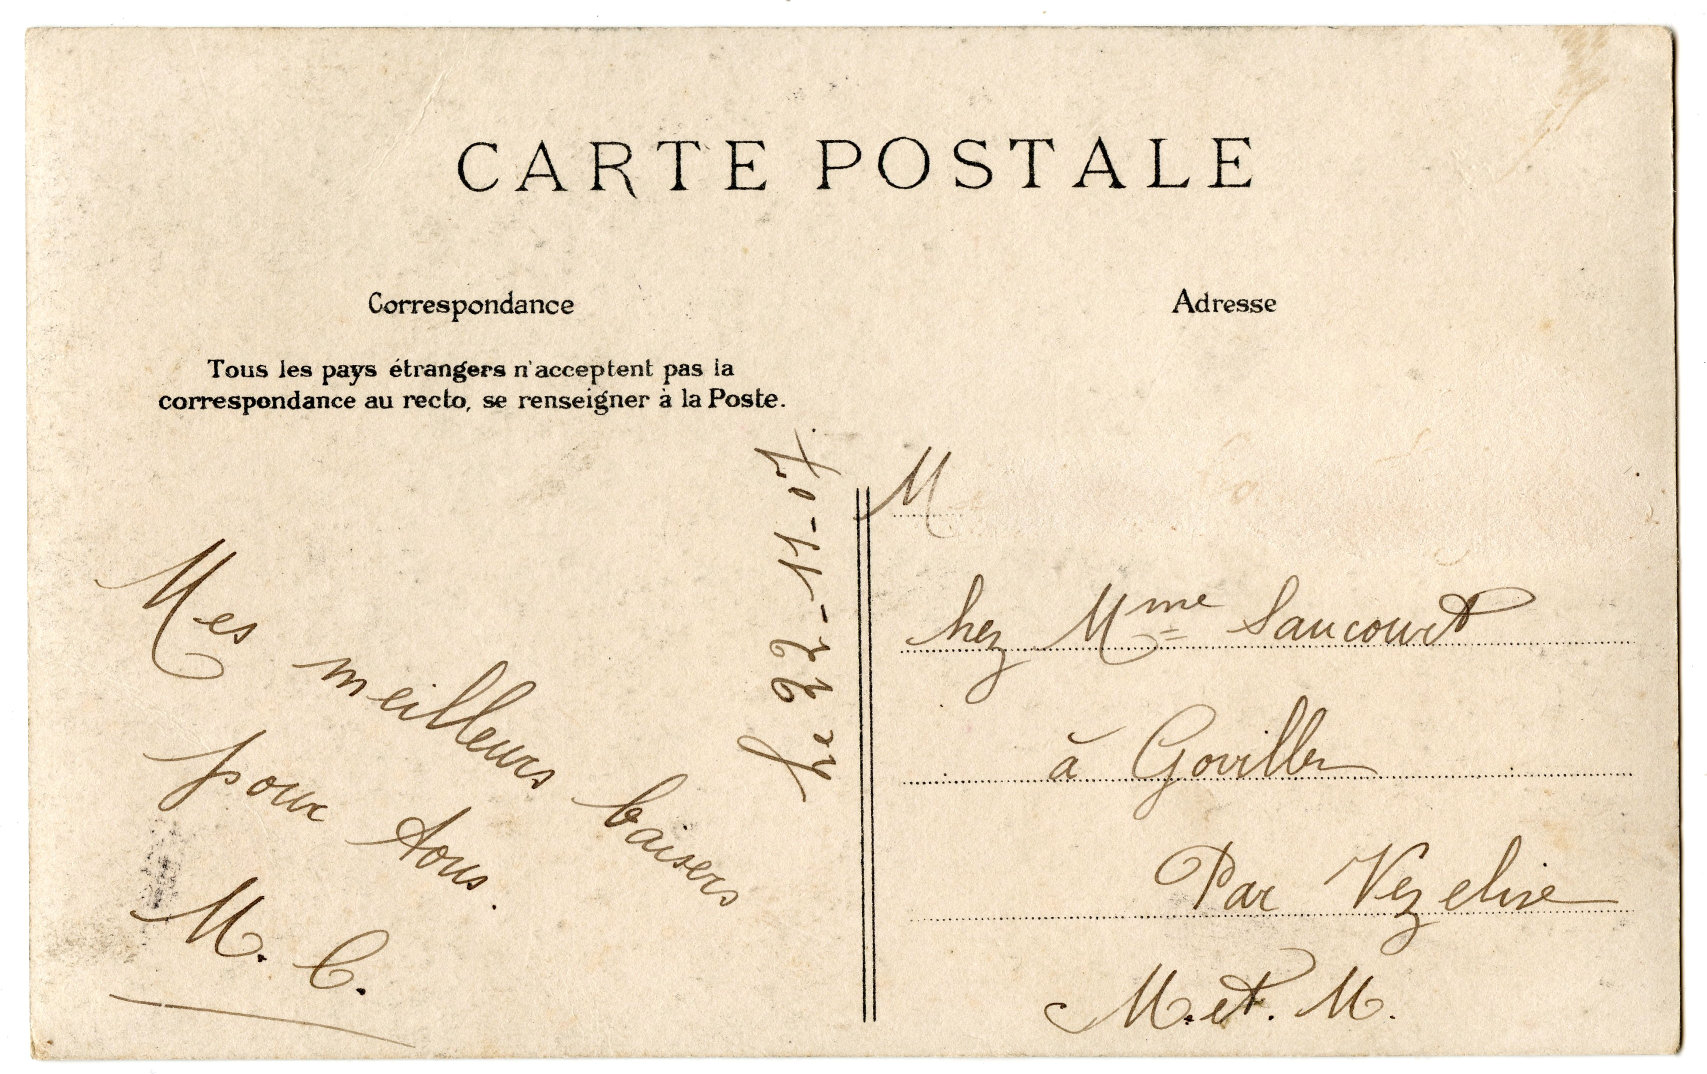 CARTE POSTALE
Correspondance
Tous les pays étrangers n'acceptent pas la
correspondance au recto, se renseigner à la Poste.
Le 22-11-07.
Mes meilleurs baisers
pour tous.
M. C.
Adresse
M
chez Mme Saucourt
à Goviller
Par Vezelise
M. et. M.